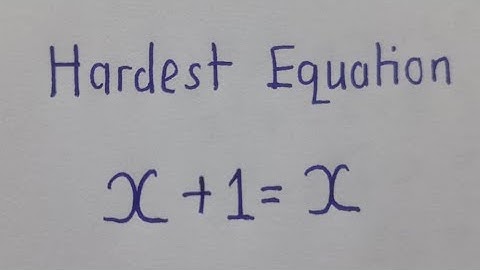 Hardest Equation
x + 1 = x